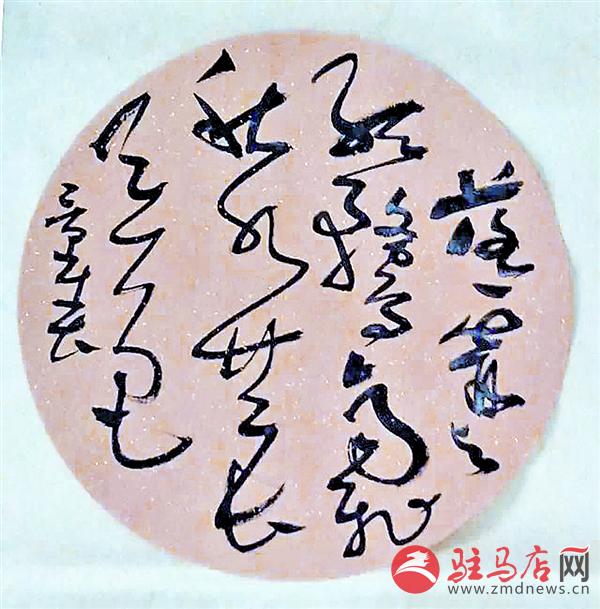 落霞与
孤鶩齊飛
秋水共長
天一色
驻马店网
www.zmdnews.cn